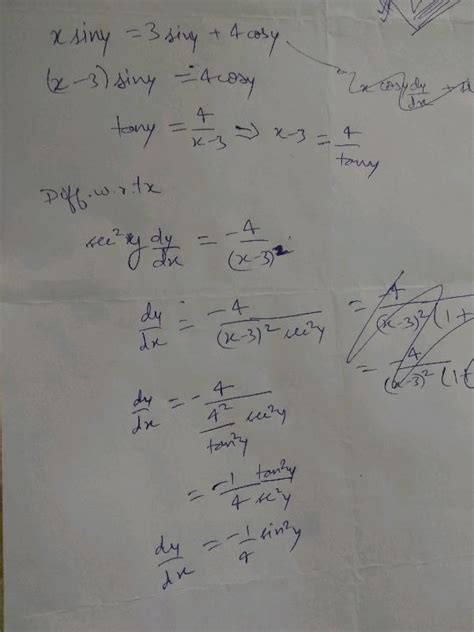 x siny = 3 siny + 4 cosy
(x-3) siny = 4 cosy
x cosy dy/dx +
tany = 4/(x-3) => x-3 = 4/tany
Diff. w.r.t x
sec²y dy/dx = -4/(x-3)²
dy/dx = -4/((x-3)² sec²y) = 4/((x-3)² (1+
= 4/((x-3)² (1+
dy/dx = -4/((4²/tan²y) sec²y)
= -1/4 tan²y/sec²y
dy/dx = -1/4 sin²y